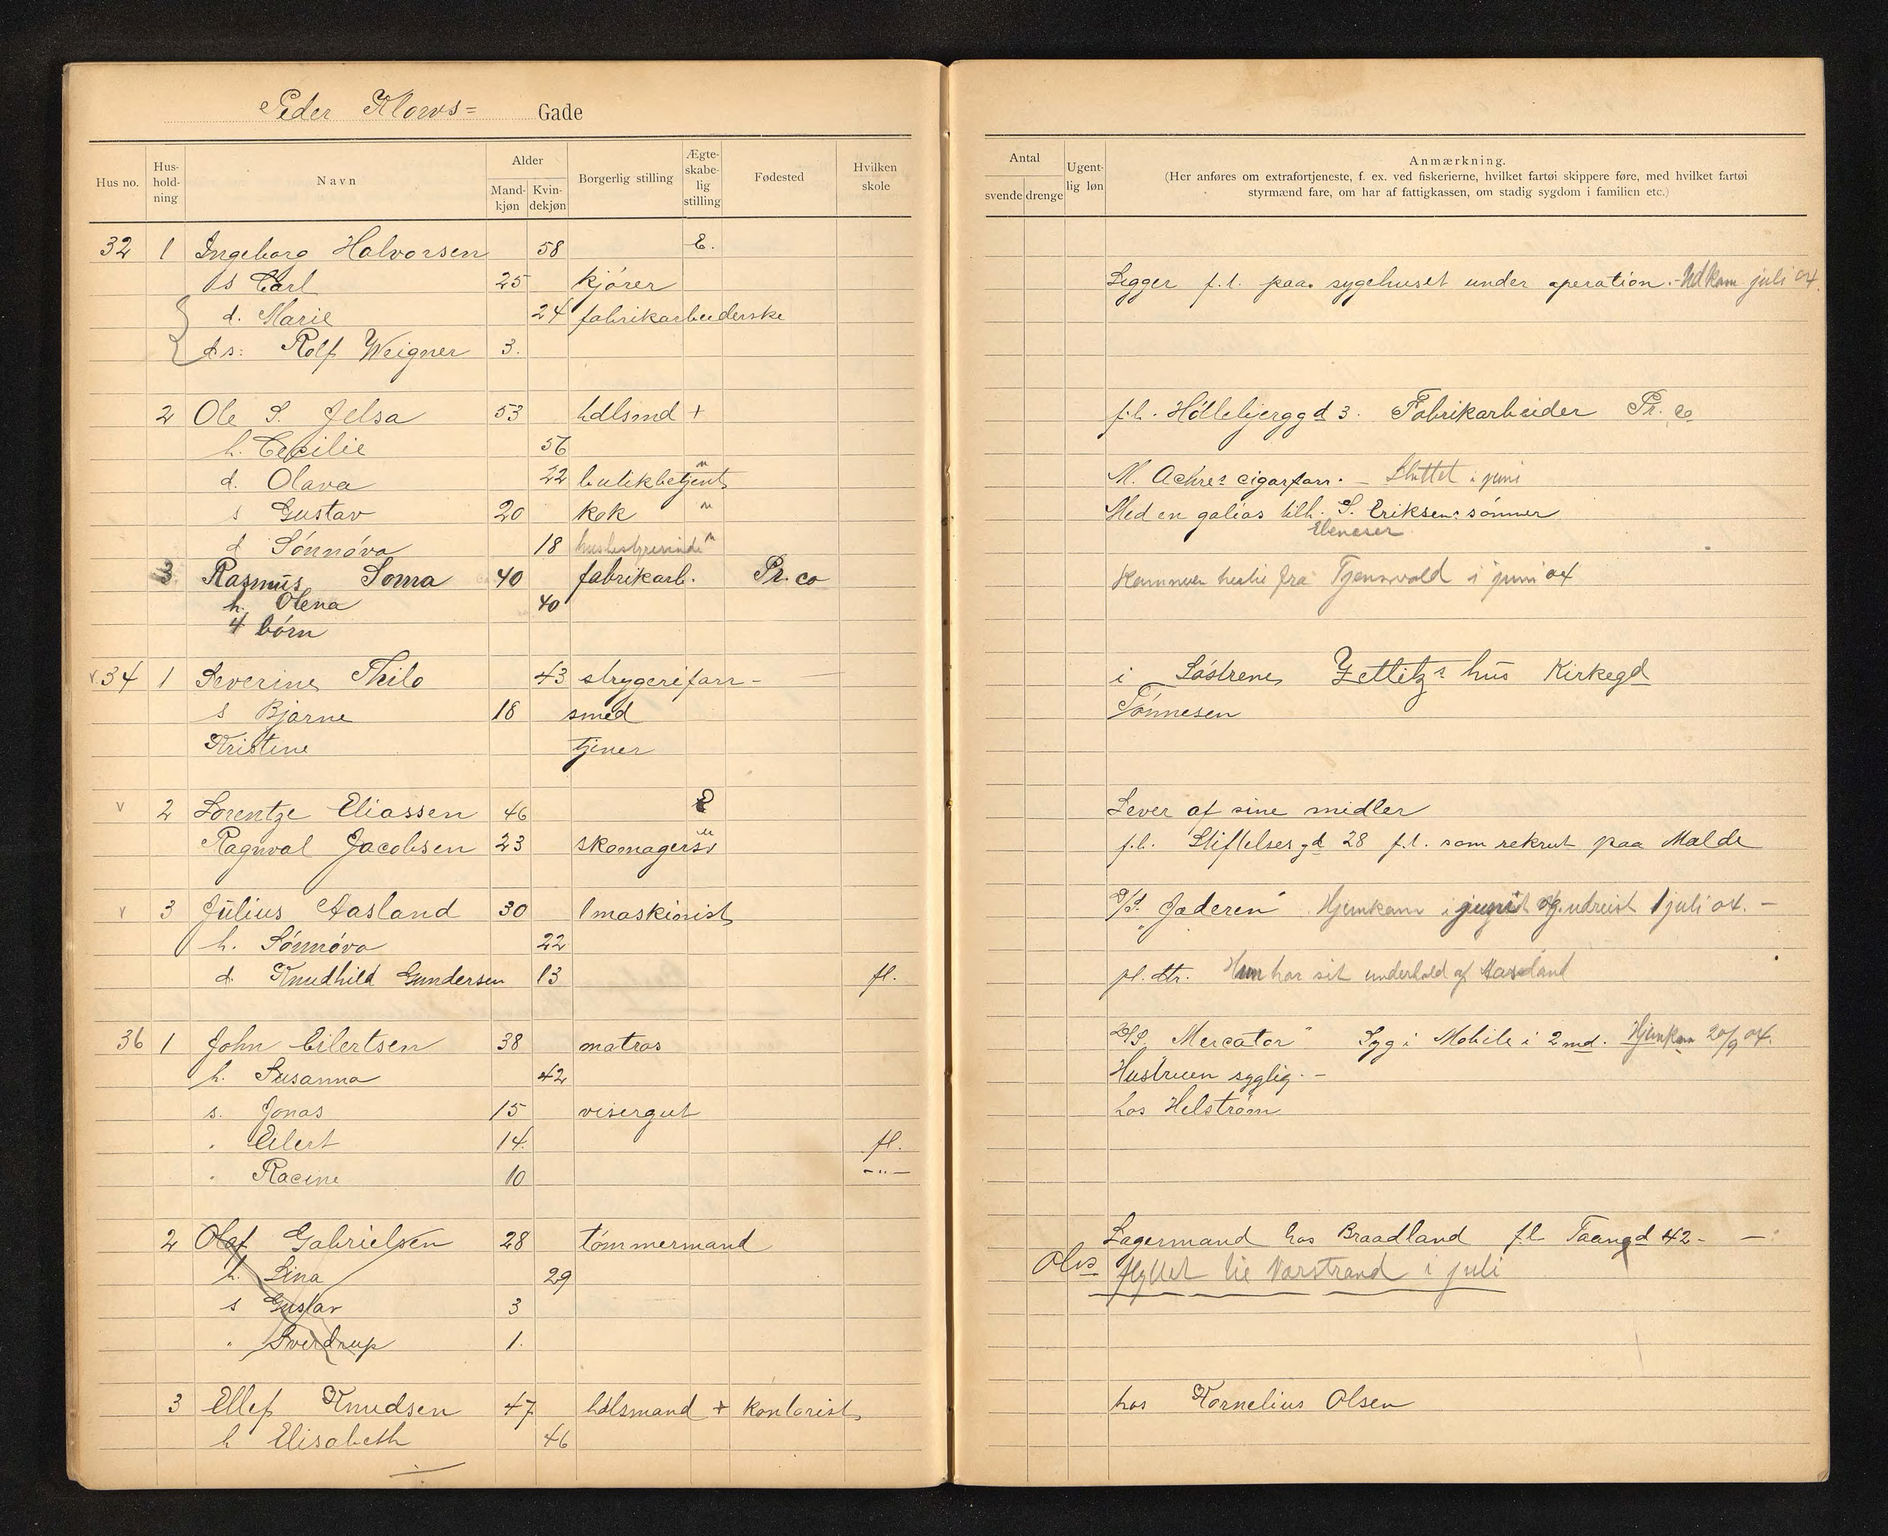 Peder Klows= Gade
Hus no. Hus-hold-ning Navn Alder Mand-kjøn Kvin-dekjøn Borgerlig stilling Ægte-skabe-lig stilling Fødested Hvilken skole
Antal svende drenge Ugent-lig løn Anmærkning.
(Her anføres om extrafortjeneste, f. ex. ved fiskerierne, hvilket fartøi skippere føre, med hvilket fartøi
styrmænd fare, om har af fattigkassen, om stadig sygdom i familien etc.)
32 1 Ingeborg Halvorsen 58 E.
s Carl 25 kjører Ligger f.t. paa sygehuset under operation. - Udkom juli 04.
d. Marie 24 fabrikarbeiderske
ds: Rolf Weigner 3.
2 Ole S. Jelsa 53 hdlsmd + f.h. Hollebjerggd 3. Fabrikarbeider Pr. co
h. Cecilie 56
d. Olava 22 butikbetjent " M. Achres cigarforr. - Sluttet i juni
s Gustav 20 kok " Med en galias tilh. S. Eriksens sønner
Ebeneser
d Sønnøva 18 husbestyrerinde "
3 Rasmus Soma 40 fabrikarb. Pr. co Kommen hertil fra Tjensvold i juni 04
h. Olena 40
4 børn
v 34 1 Severine Thilo 43 strygeriforr - i Søstrene Zetlitz's hus Kirkegd
s Bjarne 18 smed Tønnesen
Kristine tjener
v 2 Lorentze Eliassen 46 E Lever af sine midler
Ragnval Jacobsen 23 skomagersv " f.h. Stiftelsesgd 28 f.t. som rekrut paa Malde
v 3 Julius Aasland 30 1 maskinist D/S. "Jæderen" Hjemkom i juni og udreist 1 juli 04. -
h. Sønnøva 22
d Knudhild Gundersen 13 fl. pl. dtr. Hun har sit underhold af Aasland
36 1 John Eilertsen 38 matros D/S. "Mercator" Syg i Mobile i 2 md. Hjemkom 20/9 04.
h. Susanna 42 Hustruen syglig. -
s. Jonas 15 visergut hos Helstrøm
" Eilert 14. fl.
" Racine 10 -"-
2 Olaf Gabrielsen 28 tømmermand Lagermand hos Braadland f.h Taangd 42 -
h. Lina 29 Obs flyttet til Varstrand i juli
s Gustav 3
" Sverdrup 1.
3 Ellef Knudsen 47 hdlsmand + kontorist hos Kornelius Olsen
h Elisabeth 46